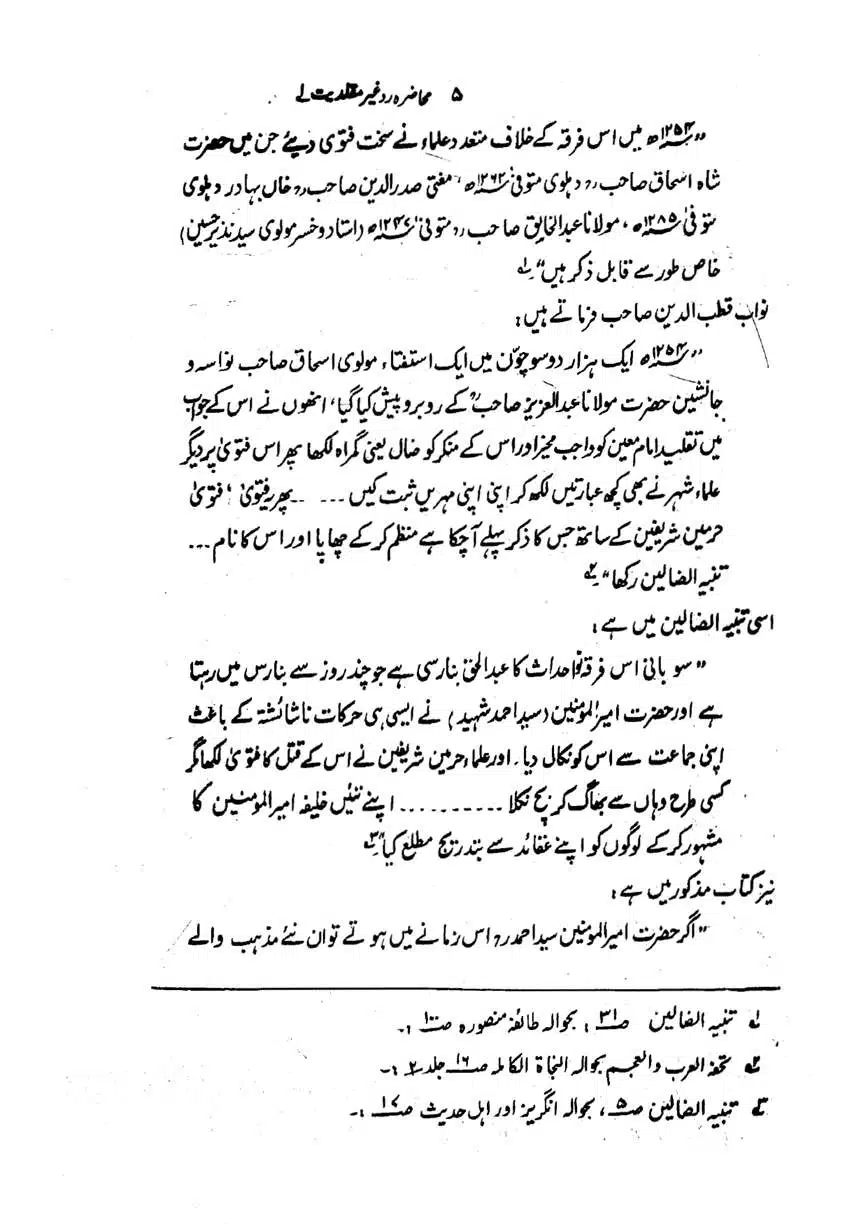 ۵ محاضرہ رد غیر مقلدیت ۱ے
”۱۲۵۴ھ میں اس فرقہ کے خلاف متعدد علماء نے سخت فتویٰ دیئے جن میں حضرت
شاہ اسحاق صاحب رح دہلوی متوفیٰ ۱۲۶۲ھ، مفتی صدر الدین صاحب رح خاں بہادر دہلوی
متوفیٰ ۱۲۸۵ھ، مولانا عبدالخالق صاحب رح متوفیٰ ھ (استاد و خسر مولوی سید نذیر حسین)
خاص طور سے قابل ذکر ہیں“ ۱ے
نواب قطب الدین صاحب فرماتے ہیں:
”۱۲۵۴ھ ایک ہزار دو سو چوّن میں ایک استفتاء مولوی اسحاق صاحب نواسہ و
جانشین حضرت مولانا عبدالعزیز صاحبؒ کے روبرو پیش کیا گیا، انھوں نے اس کے جواب
میں تقلید امام معین کو واجب مخیر اور اس کے منکر کو ضال یعنی گمراہ لکھا پھر اس فتویٰ پر دیگر
علماء شہر نے بھی کچھ عبارتیں لکھ کر اپنی اپنی مہریں ثبت کیں ۔۔۔ ۔۔ پھر یہ فتویٰ، فتویٰ
حرمین شریفین کے ساتھ جس کا ذکر پہلے آچکا ہے منظم کر کے چھاپا اور اس کا نام ...
تنبیہ الضالین رکھا“ ۲ے
اسی تنبیہ الضالین میں ہے:
”سو بانی اس فرقہ نواحداث کا عبدالحق بنارسی ہے جو چند روز سے بنارس میں رہتا
ہے اور حضرت امیر المؤمنین (سید احمد شہید) نے ایسی ہی حرکات ناشائشتہ کے باعث
اپنی جماعت سے اس کو نکال دیا۔ اور علماء حرمین شریفین نے اس کے قتل کا فتویٰ لکھا مگر
کسی طرح وہاں سے بھاگ کر بچ نکلا ۔۔۔۔۔۔۔۔۔۔ اپنے تئیں خلیفہ امیر المؤمنین کا
مشہور کر کے لوگوں کو اپنے عقائد سے بتدریج مطلع کیا“ ۳ے
نیز کتاب مذکور میں ہے:
”اگر حضرت امیر المومنین سید احمد رح اس زمانے میں ہوتے تو ان نئے مذہب والے
۱ے تنبیہ الضالین ص۳۱، بحوالہ طائفہ منصورہ ص۱۰۰ :۔
۲ے تحفۃ العرب والعجم بحوالہ النجاۃ الکاملہ ص۱۶ جلد ۲ :۔
۳ے تنبیہ الضالین ص۵، بحوالہ انگریز اور اہل حدیث ص۱۷ :۔